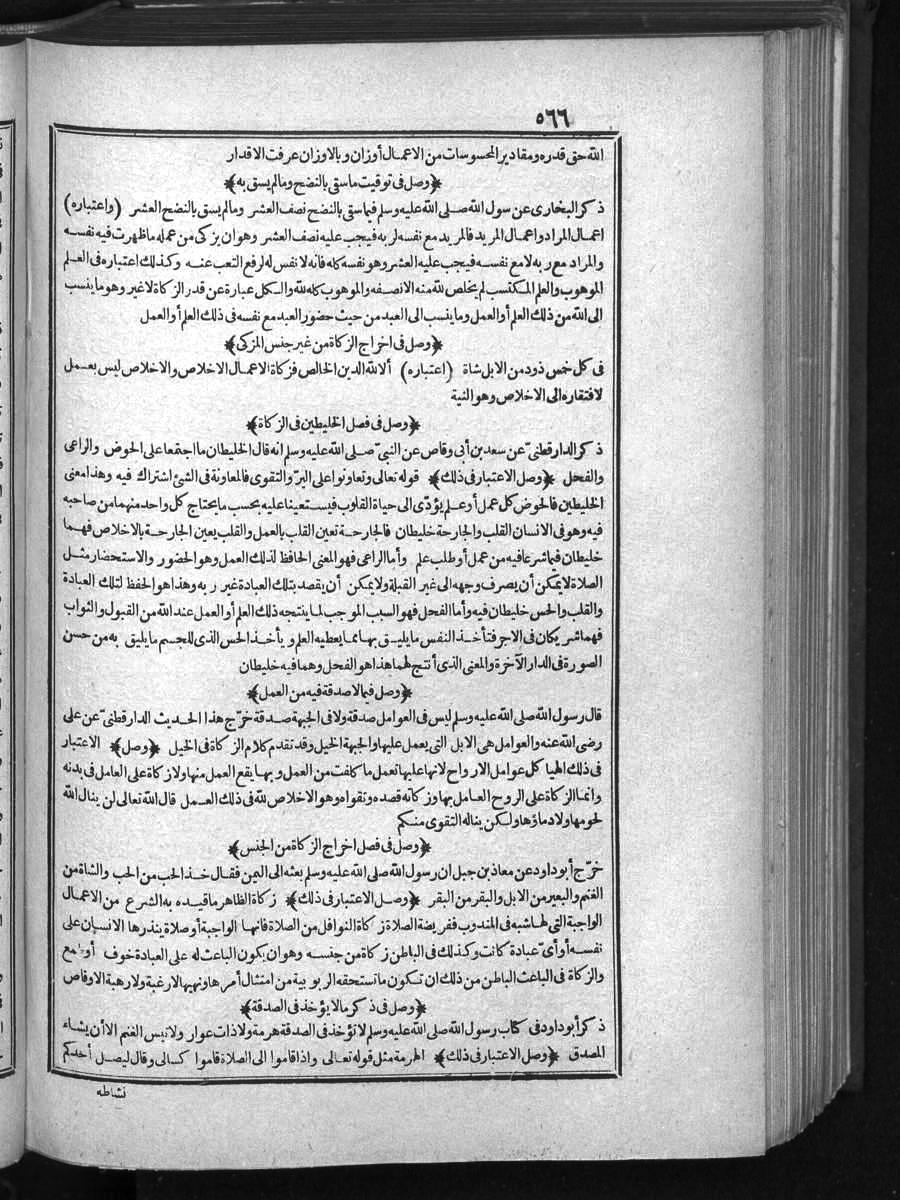 ٥٦٦
الله حق قدره ومقادير المحسوسات من الاعمال أوزان وبالاوزان عرفت الاقدار
﴿وصل فى توقيت ماسقى بالنضح ومالم يسق به﴾
ذكر البخارى عن رسول الله صلى الله عليه وسلم فيما سقى بالنضح نصف العشر ومالم يسق بالنضح العشر (واعتباره)
اعمال المراد واعمال المريد فالمريد مع نفسه لربه فيجب عليه نصف العشر وهو ان يزكى من عمله ما ظهرت فيه نفسه
والمراد مع ربه لا مع نفسه فيجب عليه العشر وهو نفسه كله فانه لا نفس له لرفع التعب عنه وكذلك اعتباره فى العلم
الموهوب والعلم المكتسب لم يخلص لله منه الا نصفه والموهوب كله لله والكل عبارة عن قدر الزكاة لا غير وهو ما ينسب
الى الله من ذلك العلم أو العمل وما ينسب الى العبد من حيث حضور العبد مع نفسه فى ذلك العلم أو العمل
﴿وصل فى اخراج الزكاة من غير جنس المزكى﴾
فى كل خمس ذود من الابل شاة (اعتباره) ألا لله الدين الخالص فزكاة الاعمال الاخلاص والاخلاص ليس بعمل
لافتقاره الى الاخلاص وهو النية
﴿وصل فى فصل الخليطين فى الزكاة﴾
ذكر الدارقطنىّ عن سعد بن أبى وقاص عن النبىّ صلى الله عليه وسلم انه قال الخليطان ما اجتمعا على الحوض والراعى
والفحل ﴿وصل الاعتبار فى ذلك﴾ قوله تعالى وتعاونوا على البرّ والتقوى فالمعاونة فى الشئ اشتراك فيه وهذا معنى
الخليطين فالحوض كل عمل أو علم يؤدّى الى حياة القلوب فيستعينا عليه بحسب ما يحتاج كل واحد منهما من صاحبه
فيه وهو فى الانسان القلب والجارحة خليطان فالجارحة تعين القلب بالعمل والقلب يعين الجارحة بالاخلاص فهما
خليطان فيما شرعا فيه من عمل أو طلب علم وأما الراعى فهو المعنى الحافظ لذلك العمل وهو الحضور والاستحضار مثل
الصلاة لا يمكن أن يصرف وجهه الى غير القبلة ولا يمكن أن يقصد بتلك العبادة غير ربه وهذا هو الحفظ لتلك العبادة
والقلب والحس خليطان فيه وأما الفحل فهو السبب الموجب لما ينتجه ذلك العلم أو العمل عند الله من القبول والثواب
فهما شريكان فى الاجر فتأخذ النفس ما يليق بها مما يعطيه العلم ويأخذ الحس الذى للجسم ما يليق به من حسن
الصورة فى الدار الآخرة والمعنى الذى أنتج لهما هذا هو الفحل وهما فيه خليطان
﴿وصل فيما لا صدقة فيه من العمل﴾
قال رسول الله صلى الله عليه وسلم ليس فى العوامل صدقة ولا فى الجبهة صدقة خرّج هذا الحديث الدارقطنىّ عن على
رضى الله عنه والعوامل هى الابل التى يعمل عليها والجبهة الخيل وقد تقدم كلام الزكاة فى الخيل ﴿وصل﴾ الاعتبار
فى ذلك الهياكل عوامل الارواح لانها عليها تعمل ما كلفت من العمل وبها يقع العمل منها ولا زكاة على العامل فى بدنه
وانما الزكاة على الروح العامل بها وزكاته قصده وتقواه وهو الاخلاص لله فى ذلك العمل قال الله تعالى لن ينال الله
لحومها ولا دماؤها ولكن يناله التقوى منكم
﴿وصل فى فصل اخراج الزكاة من الجنس﴾
خرّج أبو داود عن معاذ بن جبل ان رسول الله صلى الله عليه وسلم بعثه الى اليمن فقال خذ الحب من الحب والشاة من
الغنم والبعير من الابل والبقر من البقر ﴿وصل الاعتبار فى ذلك﴾ زكاة الظاهر ما قيده به الشرع من الاعمال
الواجبة التى لها شبه فى المندوب ففريضة الصلاة زكاة النوافل من الصلاة فانها الواجبة أو صلاة ينذرها الانسان على
نفسه أو أىّ عبادة كانت وكذلك فى الباطن زكاة من جنسه وهو ان يكون الباعث له على العبادة خوف أو طمع
والزكاة فى الباعث الباطن من ذلك ان تكون ما تستحقه الربوبية من امتثال أمرها ونهيها لا رغبة ولا رهبة الا وقاص
﴿وصل فى ذكر ما لا يؤخذ فى الصدقة﴾
ذكر أبو داود فى كتاب رسول الله صلى الله عليه وسلم لا تؤخذ فى الصدقة هرمة ولا ذات عوار ولا تيس الغنم الا أن يشاء
المصدق ﴿وصل الاعتبار فى ذلك﴾ الهرمة مثل قوله تعالى واذا قاموا الى الصلاة قاموا كسالى وقال ليصل أحدكم
نشاطه